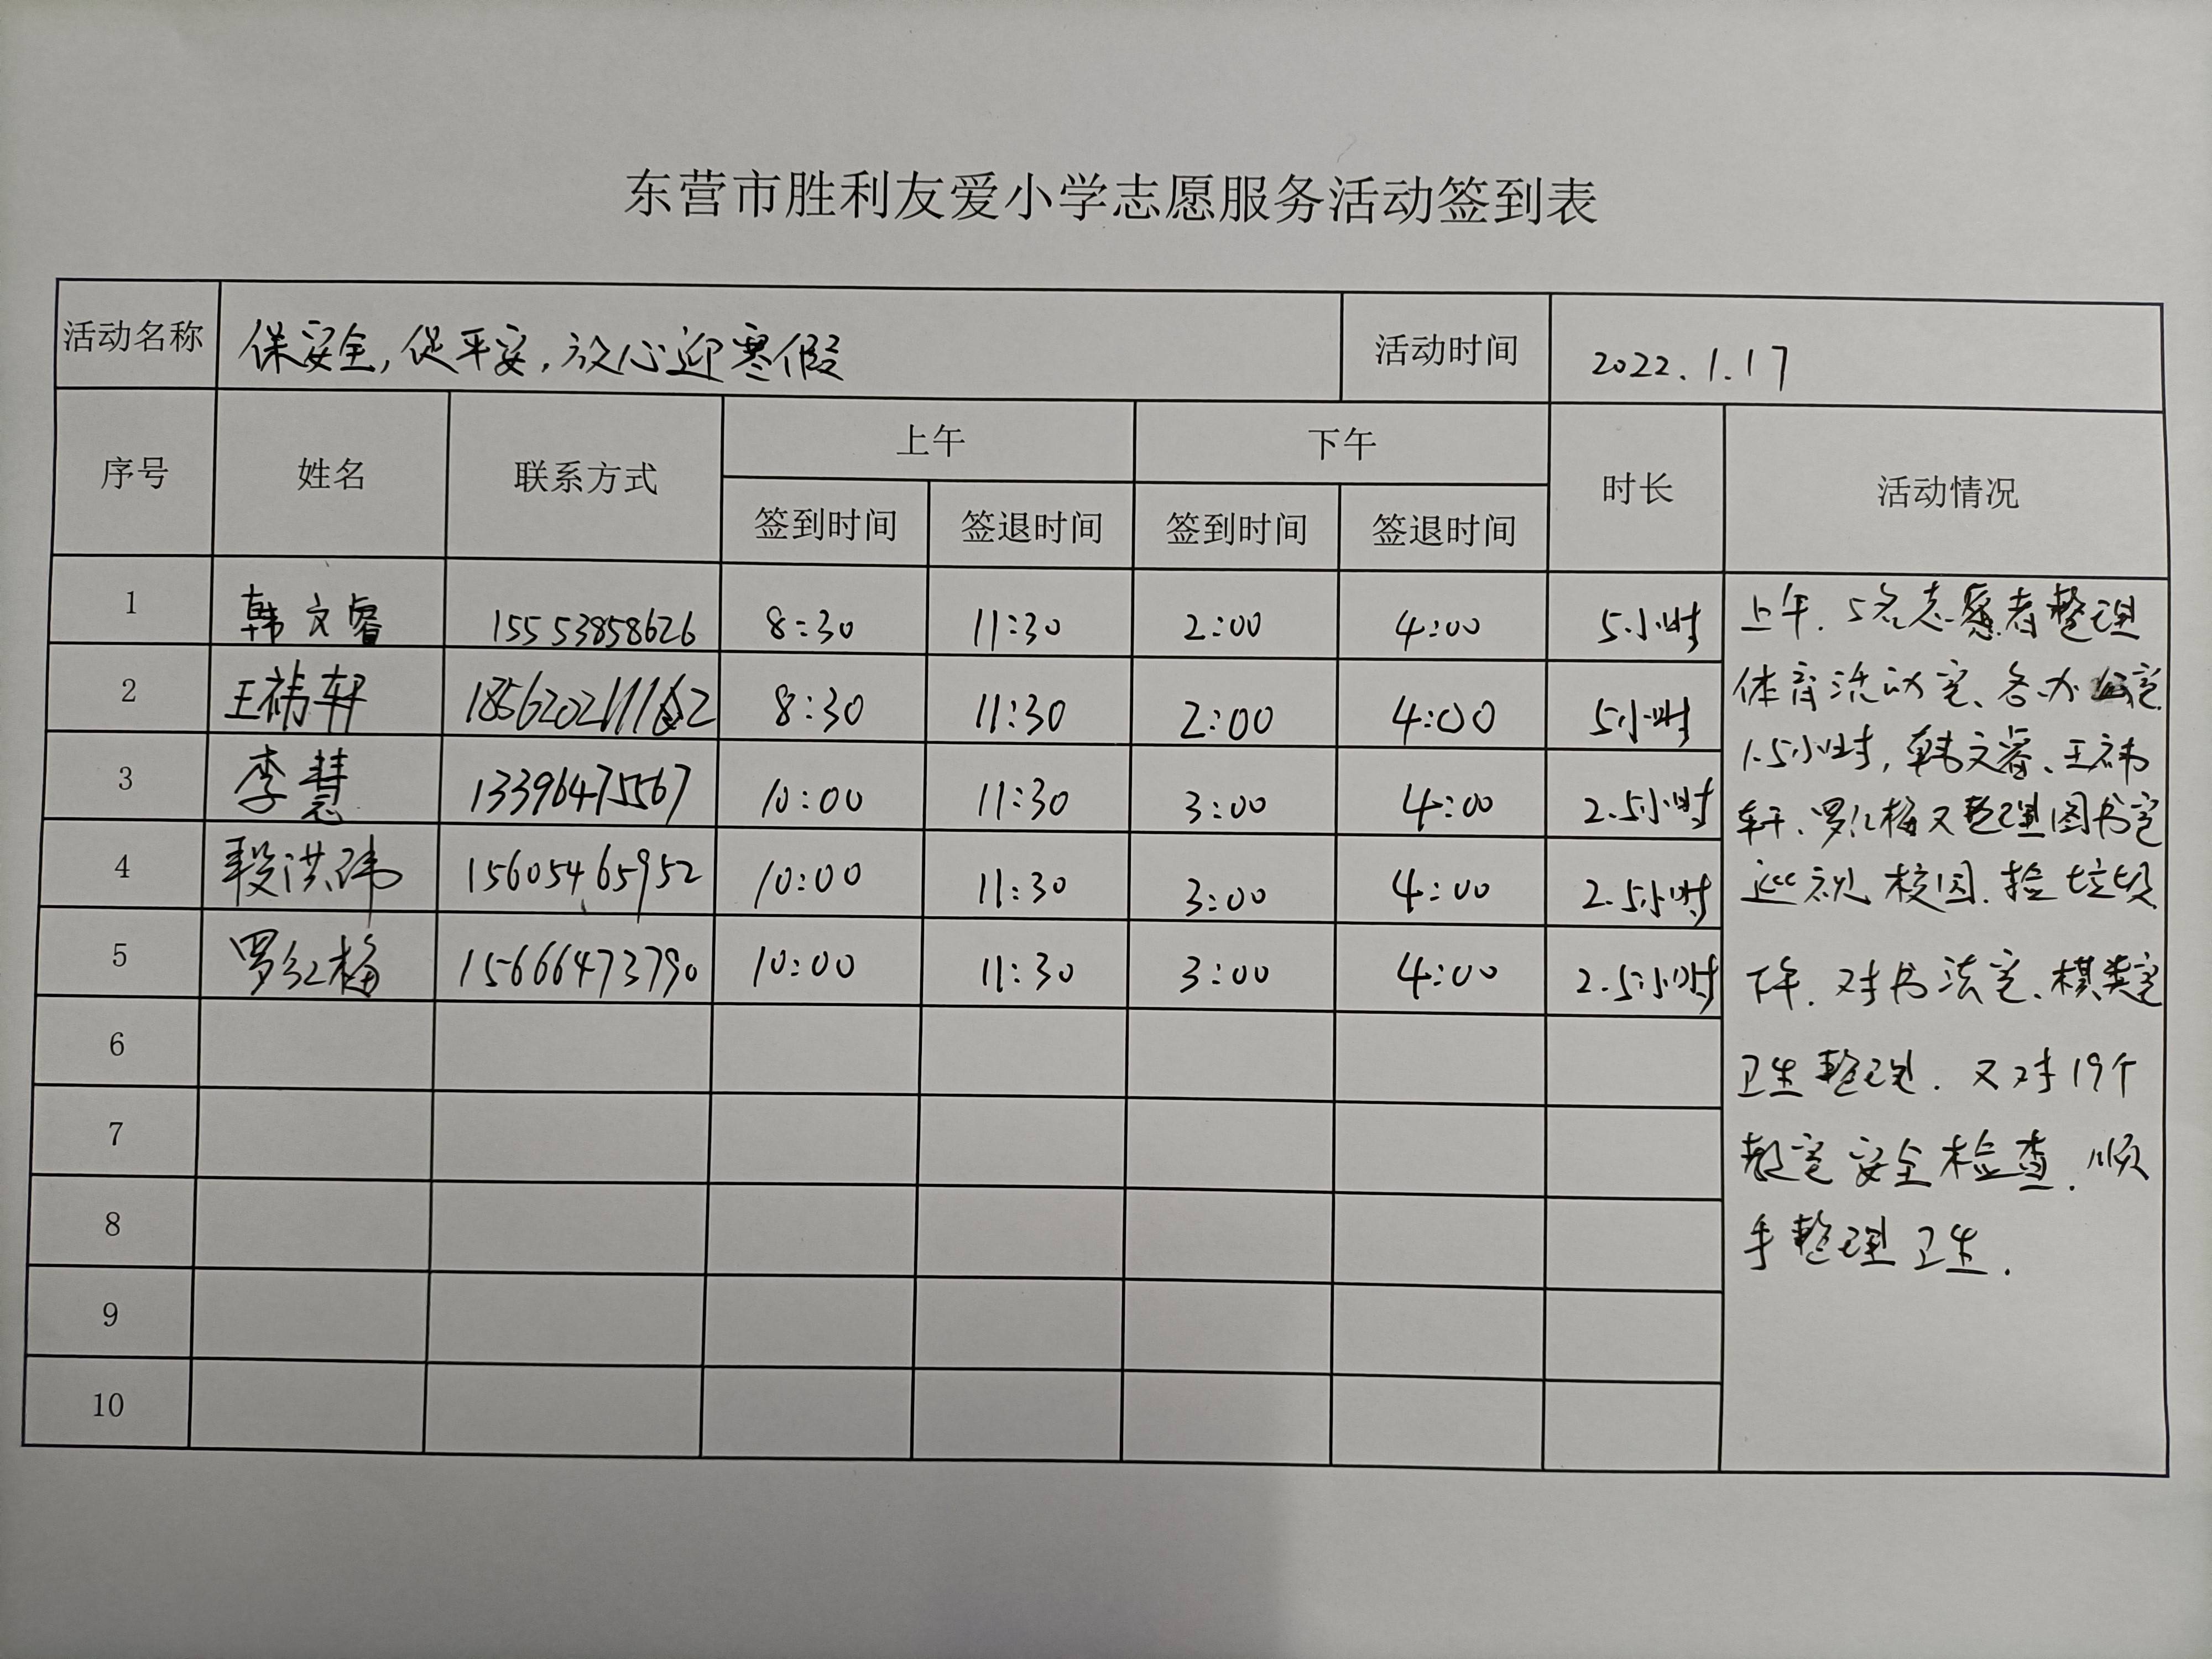 东营市胜利友爱小学志愿服务活动签到表
活动名称 保安全,促平安,放心迎寒假 活动时间 2022.1.17
序号 姓名 联系方式 上午 下午 时长 活动情况
签到时间 签退时间 签到时间 签退时间
1 韩文睿 15553858626 8:30 11:30 2:00 4:00 5小时
2 王祎轩 8:30 11:30 2:00 4:00 5小时
3 李慧 13396475567 10:00 11:30 3:00 4:00 2.5小时
4 段洪玮 15605465952 10:00 11:30 3:00 4:00 2.5小时
5 罗红梅 15666473790 10:00 11:30 3:00 4:00 2.5小时
6
7
8
9
10
上午.5名志愿者整理
体育活动室、各办公室
1.5小时,韩文睿、王祎
轩、罗红梅又整理图书室
巡视校园.捡垃圾
下午.对书法室、棋类室
卫生整理.又对19个
教室安全检查.顺
手整理卫生.